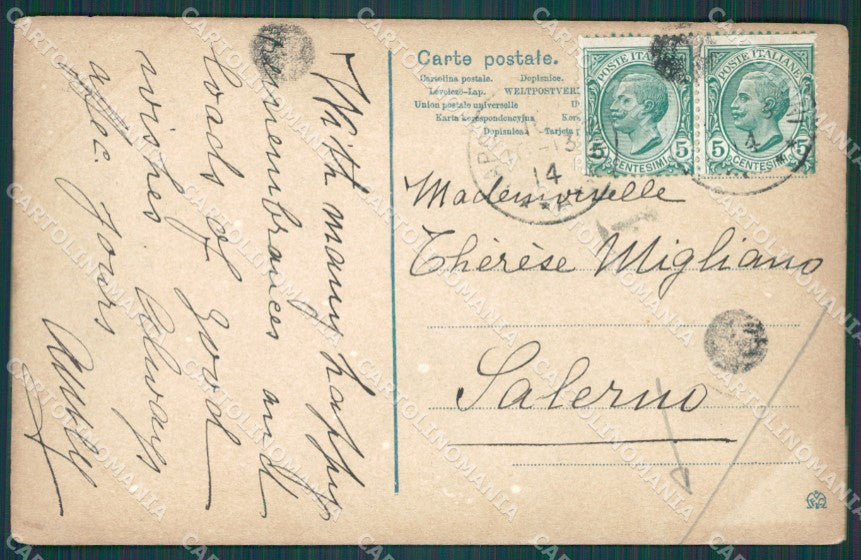 With many happy
remembrances and
loads of good
wishes. Always
affec. yours
Carte postale.
Cartolina postale. Dopisnice.
Levelező-Lap. WELTPOSTVER
Union postale universelle
Karta korespondencyjna
Dopisnica. Tarjeta
POSTE ITALIANE
5 CENTESIMI 5
POSTE ITALIANE
5 CENTESIMI 5
14
T
Mademoiselle
Thérèse Migliano
Salerno
CARTOLINOMANIA